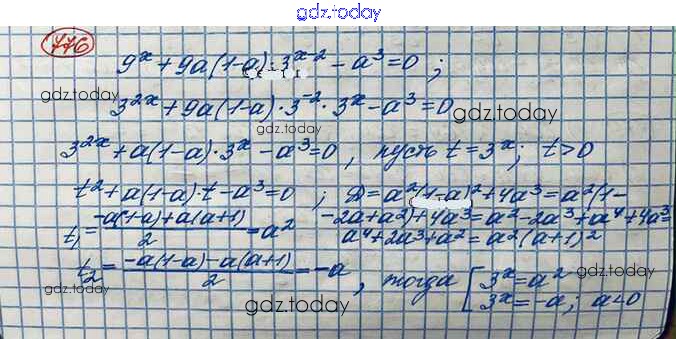 gdz.today
776
9ˣ + 9a(1-a)·3ˣ⁻² - a³ = 0 ;
gdz.today
3²ˣ + 9a(1-a)·3⁻²·3ˣ - a³ = 0
gdz.today
gdz.today
3²ˣ + a(1-a)·3ˣ - a³ = 0 , пусть t = 3ˣ ; t > 0
t² + a(1-a)·t - a³ = 0 ; D = a²(1-a)² + 4a³ = a²(1-
gdz.today
-2a + a²) + 4a³ = a² - 2a³ + a⁴ + 4a³ =
t₁ = (-a(1-a) + a(a+1))/2 = a²
a⁴ + 2a³ + a² = a²(a+1)²
t₂ = (-a(1-a) - a(a+1))/2 = -a , тогда [ 3ˣ = a²
gdz.today
3ˣ = -a ; a < 0
gdz.today